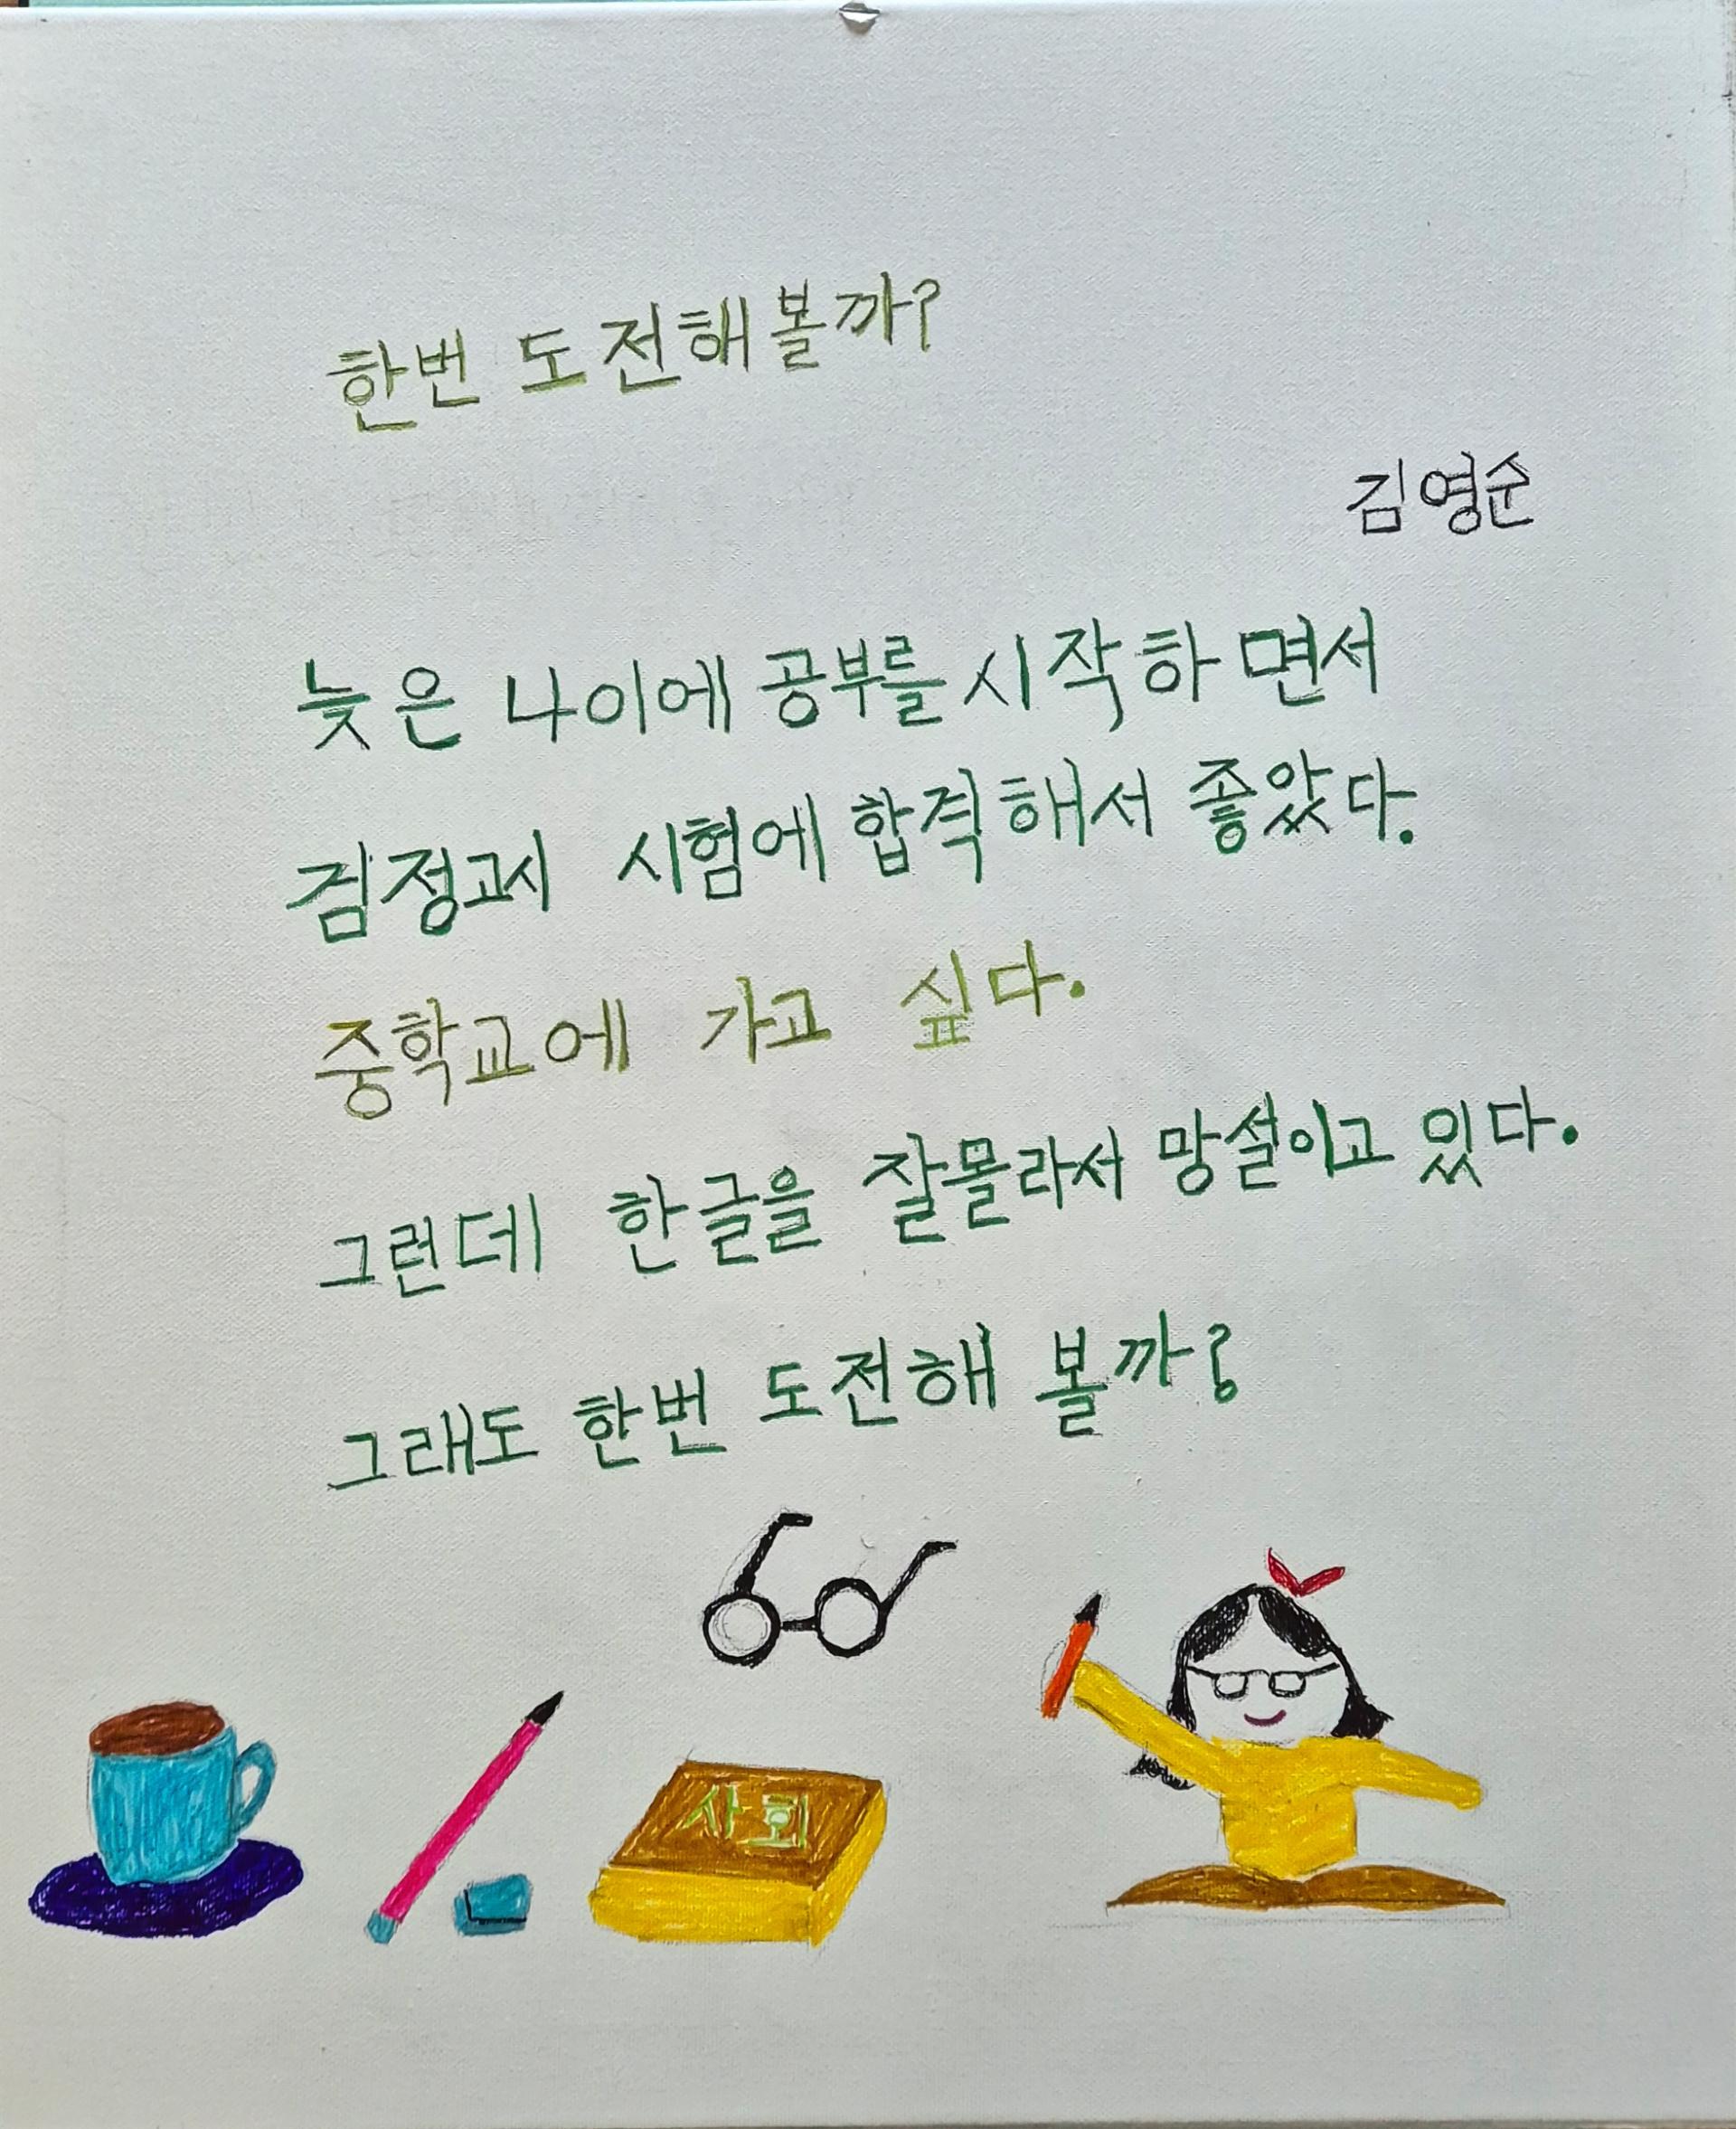 한번 도전해볼까?
김영순
늦은 나이에 공부를 시작하면서
검정고시 시험에 합격해서 좋았다.
중학교에 가고 싶다.
그런데 한글을 잘몰라서 망설이고 있다.
그래도 한번 도전해 볼까?
사회